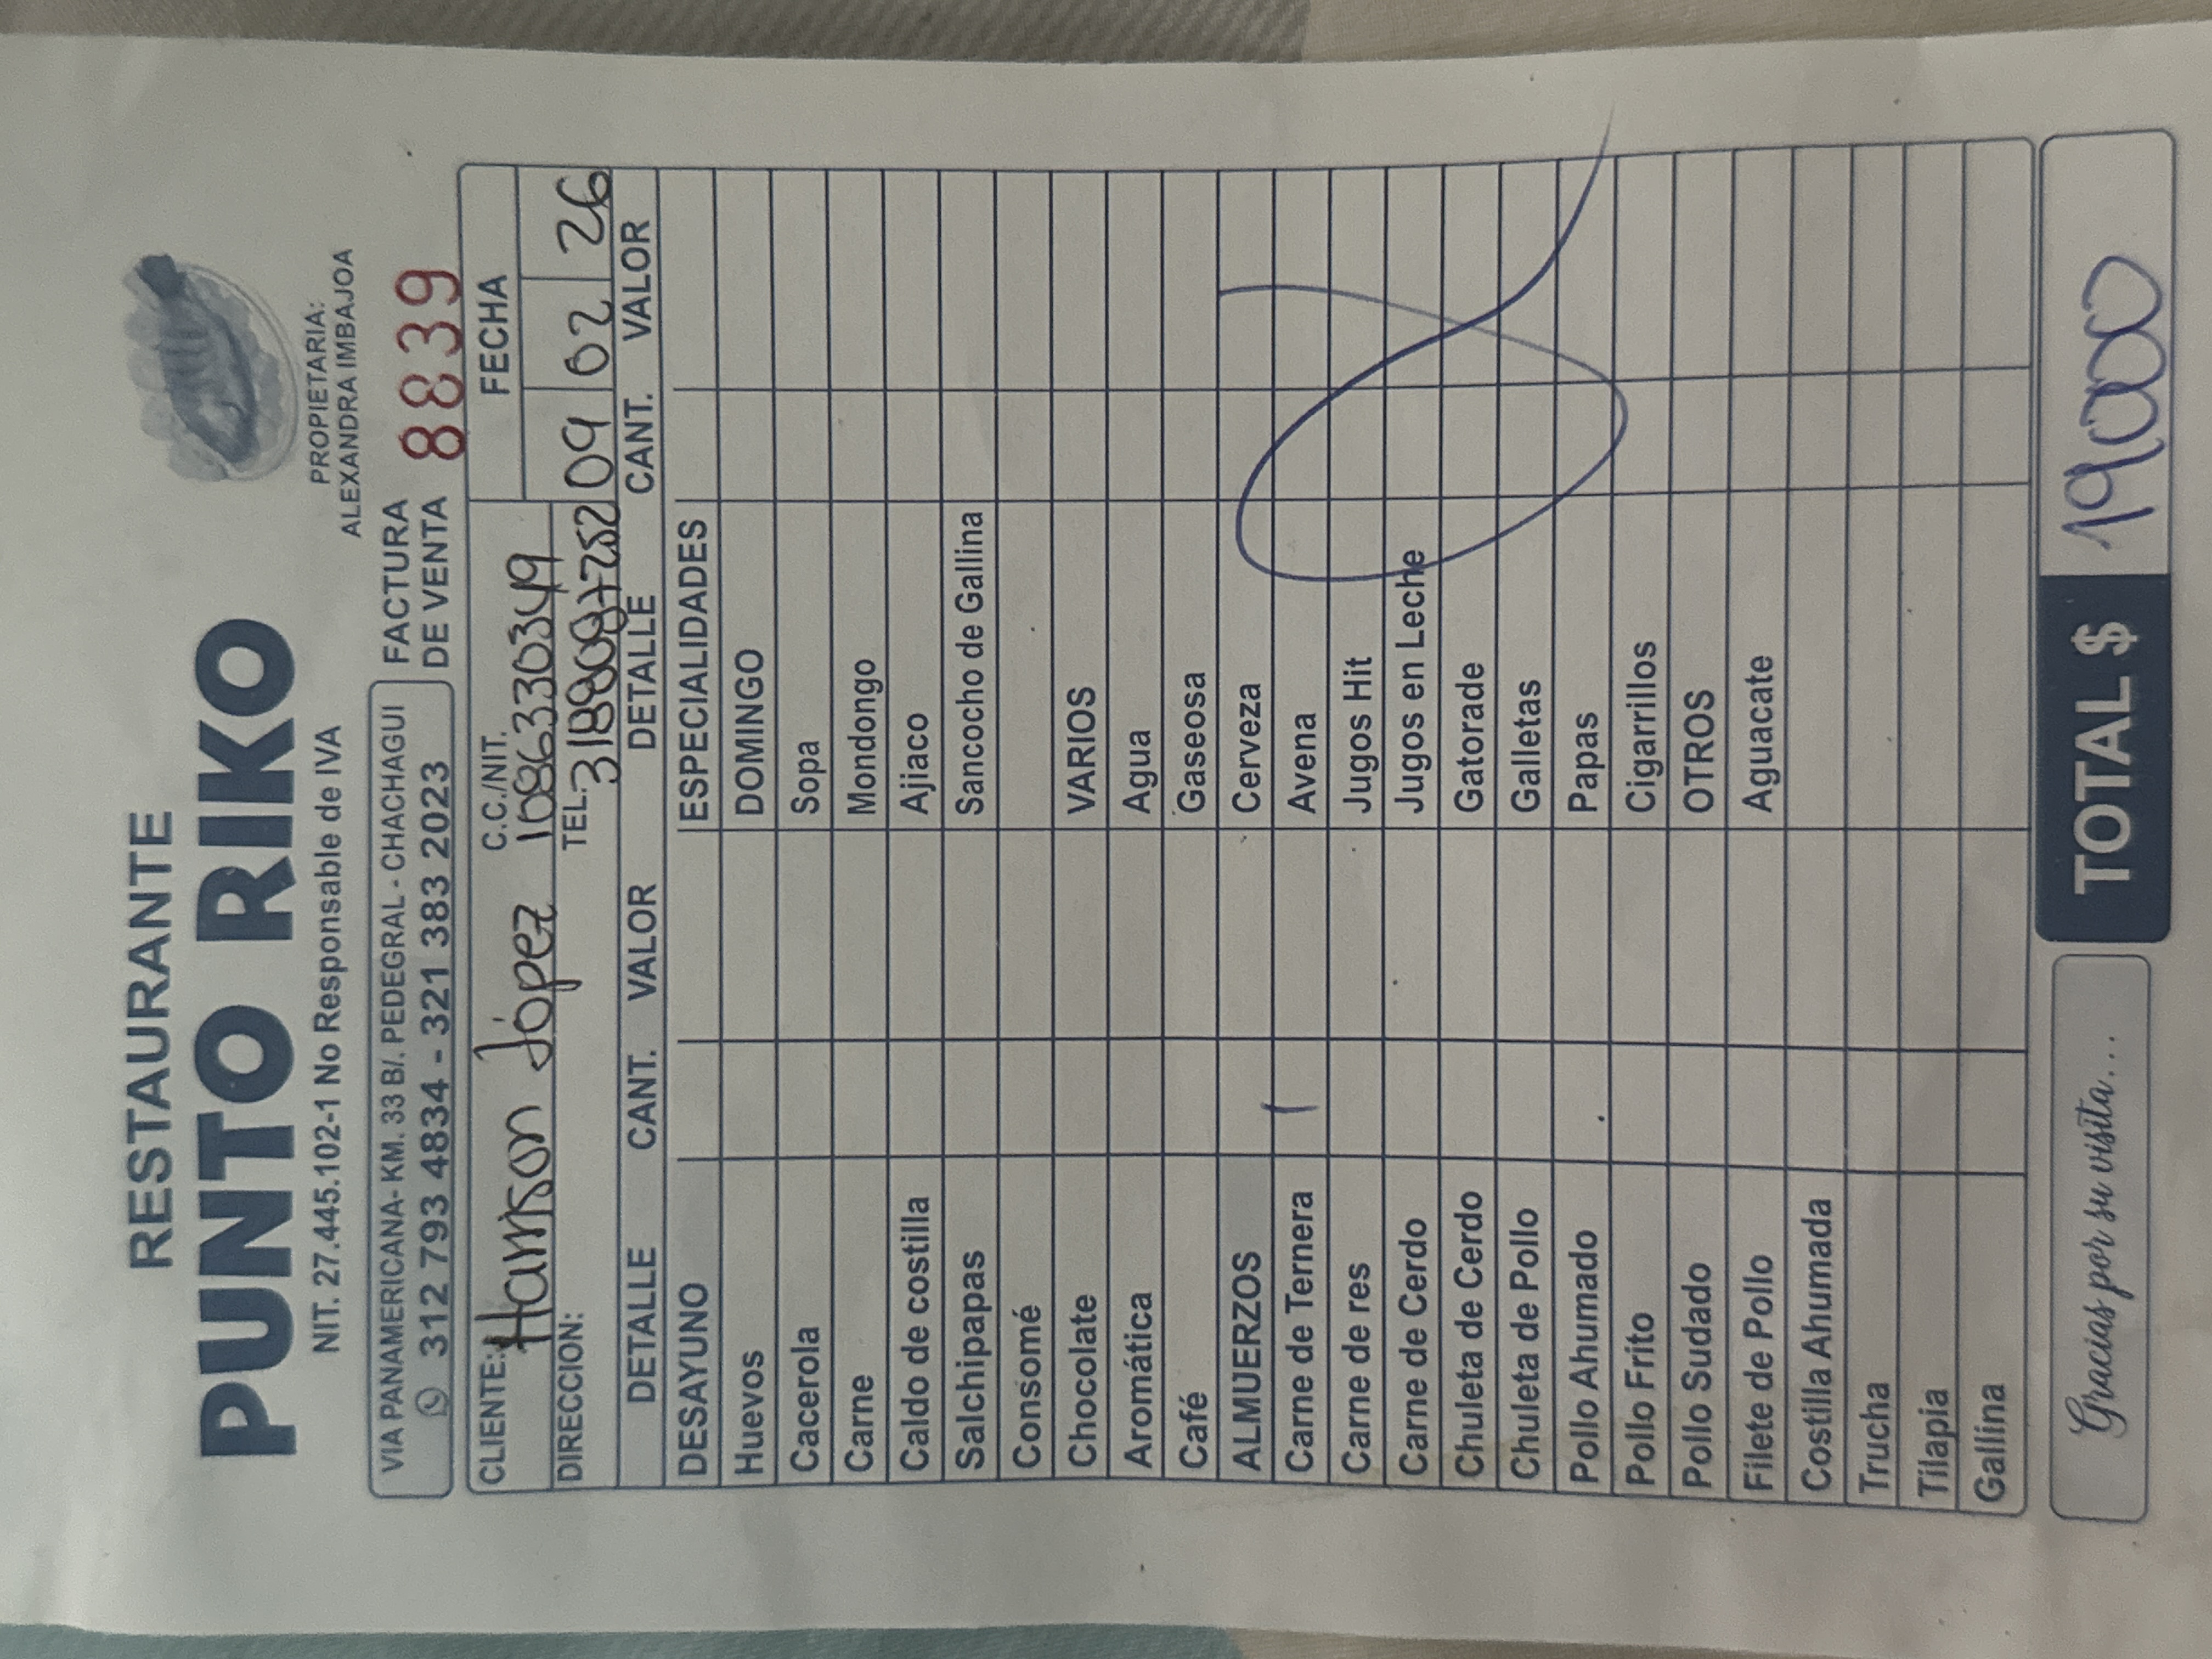 RESTAURANTE
PUNTO RIKO
NIT. 27.445.102-1 No Responsable de IVA
PROPIETARIA:
ALEXANDRA IMBAJOA
VIA PANAMERICANA- KM. 33 B/. PEDEGRAL - CHACHAGUI
312 793 4834 - 321 383 2023
FACTURA
DE VENTA
8839
CLIENTE: Harrison López C.C./NIT. 1086330349
FECHA
DIRECCION: TEL. 3188087252 09 02 26
DETALLE CANT. VALOR DETALLE CANT. VALOR
DESAYUNO ESPECIALIDADES
Huevos DOMINGO
Cacerola Sopa
Carne Mondongo
Caldo de costilla Ajiaco
Salchipapas Sancocho de Gallina
Consomé
Chocolate VARIOS
Aromática Agua
Café Gaseosa
ALMUERZOS Cerveza
Carne de Ternera 1 Avena
Carne de res Jugos Hit
Carne de Cerdo Jugos en Leche
Chuleta de Cerdo Gatorade
Chuleta de Pollo Galletas
Pollo Ahumado Papas
Pollo Frito Cigarrillos
Pollo Sudado OTROS
Filete de Pollo Aguacate
Costilla Ahumada
Trucha
Tilapia
Gallina
Gracias por su visita...
TOTAL $ 19000